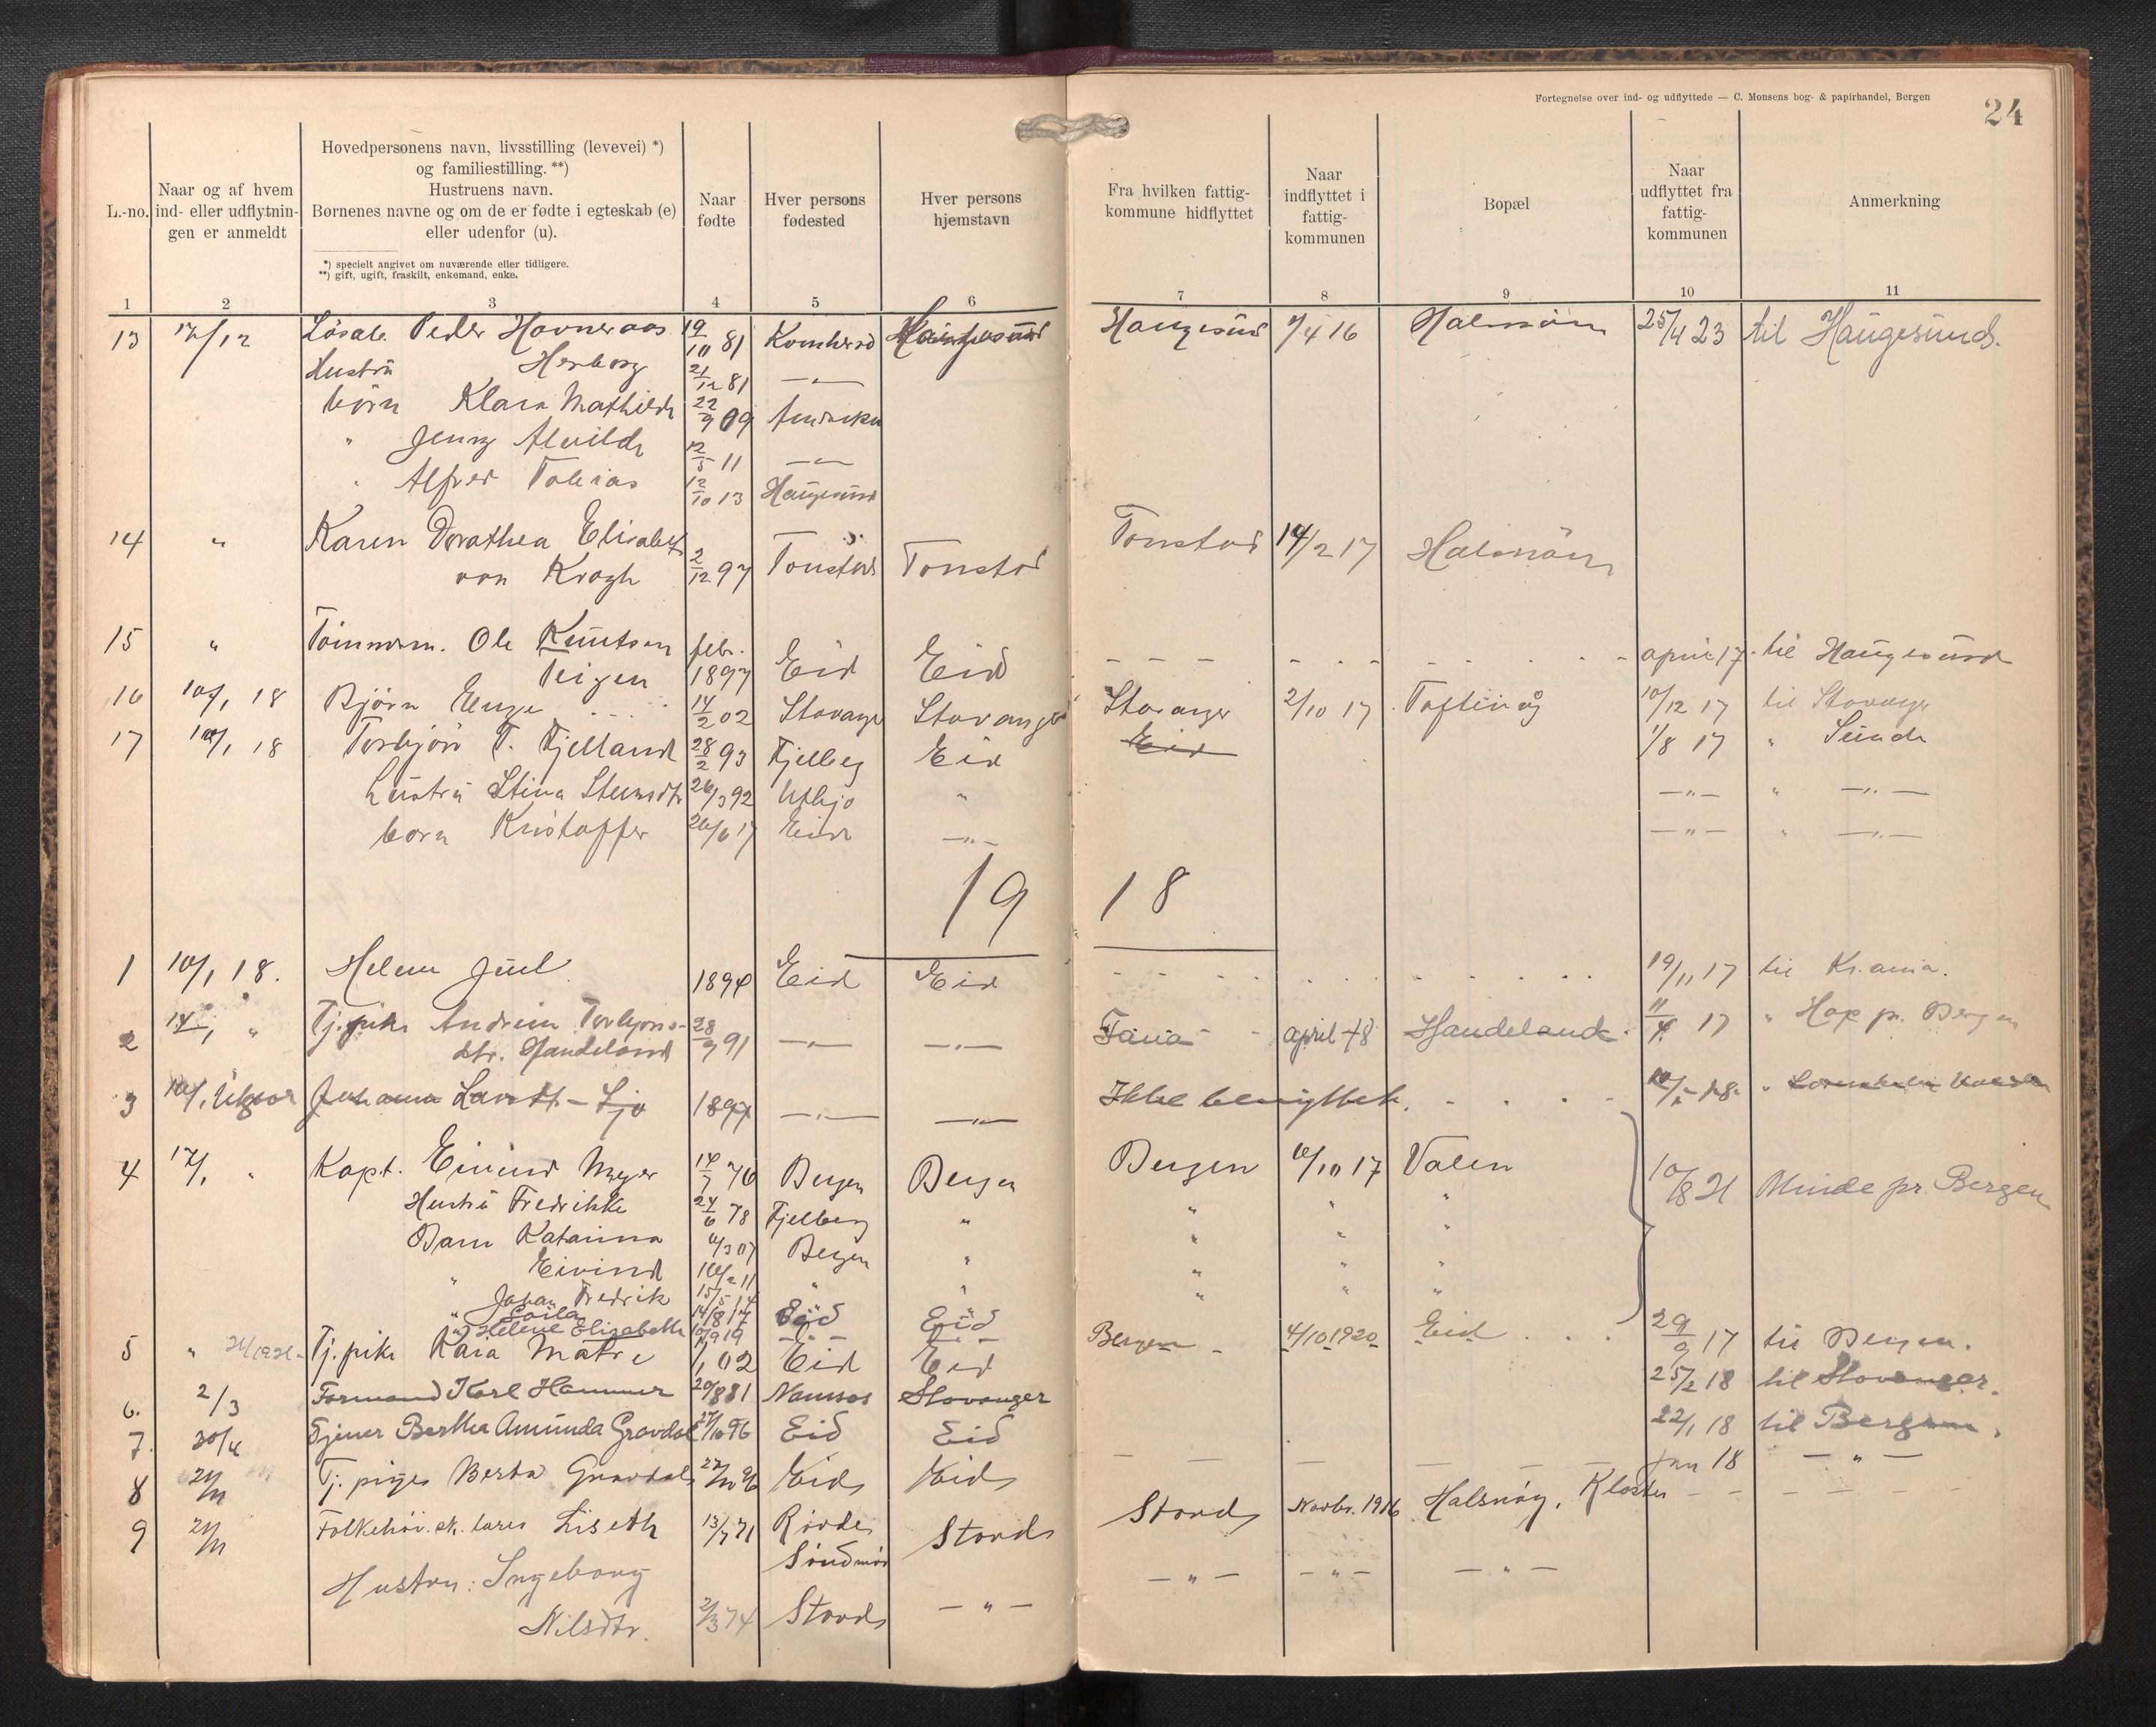 Fortegnelse over ind- og udflyttede — C. Monsens bog- & papirhandel, Bergen
24
L.-no.
Naar og af hvem
ind- eller udflytnin-
gen er anmeldt
Hovedpersonens navn, livsstilling (levevei) *)
og familiestilling. **)
Hustruens navn.
Børnenes navne og om de er fødte i egteskab (e)
eller udenfor (u).
*) specielt angivet om nuværende eller tidligere.
**) gift, ugift, fraskilt, enkemand, enke.
Naar
fødte
Hver persons
fødested
Hver persons
hjemstavn
Fra hvilken fattig-
kommune hidflyttet
Naar
indflyttet i
fattig-
kommunen
Bopæl
Naar
udflyttet fra
fattig-
kommunen
Anmerkning
1 2 3 4 5 6 7 8 9 10 11
13 Peder Hovneraas 19/10 81 Haugesund Haugesund 7/4 16 Halsnöen 25/4 23 til Haugesund.
Hustrü Herborg 21/12 81 —"—
börn Klara Mathilde 22/9 09
" Jenny Alvilde 12/5 11 —"—
" Alfred Tobias 12/10 13 Haugesund
14 " Karen Dorathea Elisabeth
von Krogh 2/12 97 Tonstad Tonstad Tonstad 14/2 17 Halsnöen
15 " Tömmerm. Ole Knutsen febr.
Teigen 1897 Eid Eid april 17 til Haugesund
16 10/1 18 Bjørn Enge 14/2 02 Stavanger Stavanger Stavanger 2/10 17 Toftevåg 10/12 17 til Stavanger
17 10/1 18 Torbjörn T. Fjelland 28/2 93 Fjelberg Eid Eid 1/8 17 " Sunde
hustrü Stina 26/3 92 Utbjo " —"— " —"—
barn Kristoffer 26/6 17 Eid —"— —"— " —"—
19 18
1 10/1 18. Helene Juel 1894 Eid Eid 19/11 17 til Kr.ania.
2 14/1 " Tj.pike Andrea Torbjörns-
dtr. Handeland 28/9 91 —"— —"— Fana april 18 Handeland 11/4 17 " Hop pr. Bergen
3 10/1 Johanna Larsdt. Ljo 1897 —"— —"— Ikke benyttet. 10/1 18
4 17/1 " Kapt. Eivind Meyer 14/7 76 Bergen Bergen Bergen 10/10 17 Valen 10/8 21 Minde pr. Bergen
Hustrü Fredrikke 24/6 78 Fjelberg " " " "
Barn Katarina 11/3 07 Bergen " " " "
" Eivind 16/2 11 " " " " "
Johan Fredrik 15/5 14 " " " " "
" Laila 14/8 17 Eid Eid
" Helene Elisabeth 10/9 19
5 " Tj.pike Kara Matre 1/1 02 Eid Eid Bergen 4/10 1920 Eid 29/9 17 til Bergen.
6. 2/3 Formand Karl Hammer 20/8 81 Namsos Stavanger 25/2 18 til Stavanger.
7. 30/4 Tjener Bertha Amunda Gravdal 27/10 96 Eid Eid 22/1 18 til Bergen.
8 21/11 Tj. piges Berta Gravdal 27/10 96 Eid Eid — — — — — jan 18 — " —
9 21/11 Folkehöi.sk. lærer Liseth 13/7 71 Rovde
Söndmör Stord Stord Novbr. 1916 Halsnöy, Kloster
Hustru: Ingeborg
Nilsdtr. 2/3 74 Stord — " — — " — — " — — " —